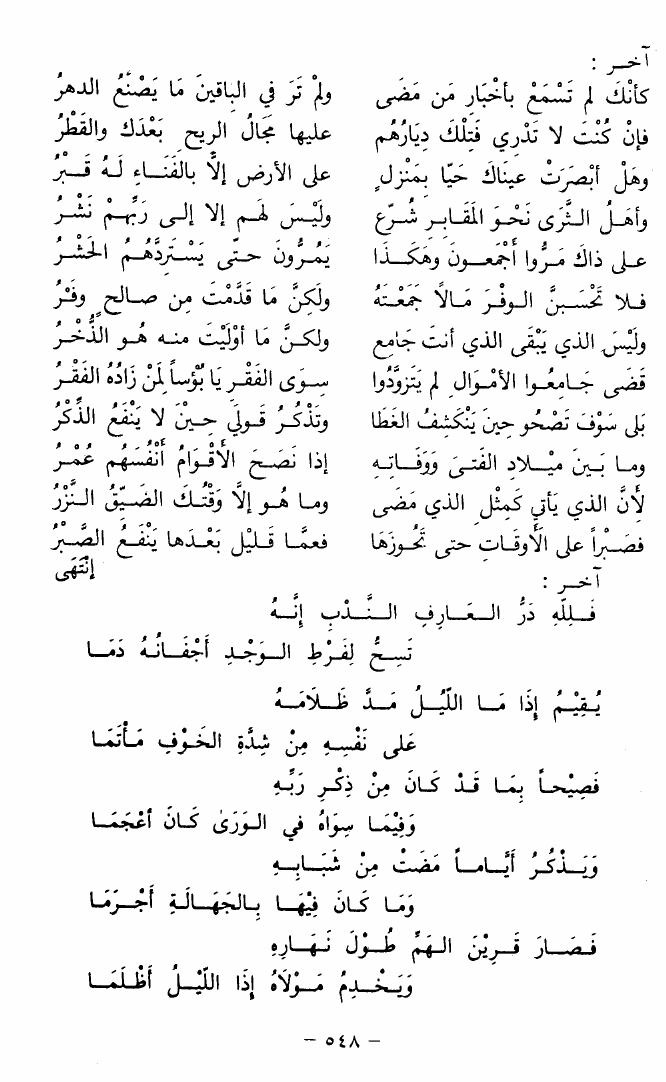 آخـر :
كأنْكَ لم تَسْمَعْ بأخْبَار مَن مَضَى ولمْ تَرَ في الباقينَ مَا يَصْنَعُ الدهرُ
فإنْ كُنْتَ لا تَدْرِي فَتَلْكَ دِيَارُهُم عليها مَجَالُ الريحِ بَعْدَكَ والقَطْرُ
وهَلْ أبْصَرَتْ عيناكَ حَيًّا بمَنْزلٍ على الأرضِ إلاَّ بالفَنَاءِ لَهُ قَبْرُ
وأهلُ الثَّرَى نَحْوَ المَقَابرِ شُرَّع وليْسَ لهم إلا إلى رَبِّهمْ نَشْرُ
على ذاكَ مَرُّوا أجْمَعونَ وهكَذا يَمُرُّونَ حتَّى يَسْتَردَّهُمُ الحَشْرُ
فلا تَحْسَبنَّ الوفْرَ مَالاً جَمَعْتَهُ ولكِنَّ مَا قَدَّمْتَ مِن صالحٍ وفْرُ
ولَيْسَ الذي يَبْقَى الذي أنتَ جَامِع ولكنَّ مَا أوْلَيْتَ منه هُو الذُّخْرُ
قَضَى جَامِعُوا الأمْوَالِ لم يَتَزوَّدُوا سِوَى الفَقْرِ يَا بُؤْساً لِمَنْ زَادُهُ الفَقْرُ
بَلى سَوْفَ تَصْحُو حِينَ يَنْكَشِفُ الغَطَا وتَذْكرُ قَولي حِينَ لا يَنْفَعُ الذِّكْرُ
وما بَينَ مِيْلادِ الفَتَى وَوَفَاتِهِ إذا نَصَحَ الأقْوَامُ أنْفُسَهُم عُمْرُ
لأنَّ الذي يَأتي كَمِثْلِ الذي مَضَى وما هُو إلاَّ وَقْتُكَ الضَيِّقُ النَّزْرُ
فصَبْراً على الأوقَاتِ حتى تَحُوزَهَا فعمَّا قَليْلٍ بَعْدَها يَنْفَعُ الصَّبْرُ
إنْتَهَى
آخر :
فَلِلَّهِ دَرُّ العَارِفِ النَّدْبِ إنَّهُ
تَسِحُّ لِفَرْطِ الوَجْدِ أجْفَانُهُ دَمَا
يُقِيْمُ إذَا مَا اللَّيْلُ مَدَّ ظَلاَمَهُ
عَلى نَفْسِهِ مِنْ شِدَّةِ الخَوْفِ مَأتَمَا
فَصِيْحاً بِمَا قَدْ كَانَ مِنْ ذِكْرِ رَبِّهِ
وَفِيْمَا سِوَاهُ في الوَرَىٰ كَانَ أعْجَمَا
وَيَذْكُرُ أيَّاماً مَضَتْ مِنْ شَبَابِهِ
وَمَا كَانَ فِيْهَا بِالجَهَالَةِ أجْرَمَا
فَصَارَ قَرِيْنَ الهَمِّ طُوْلَ نَهَارِهِ
وَيَخْدِمُ مَوْلاَهُ إذَا اللَّيْلُ أظْلَمَا
– ٥٤٨ –